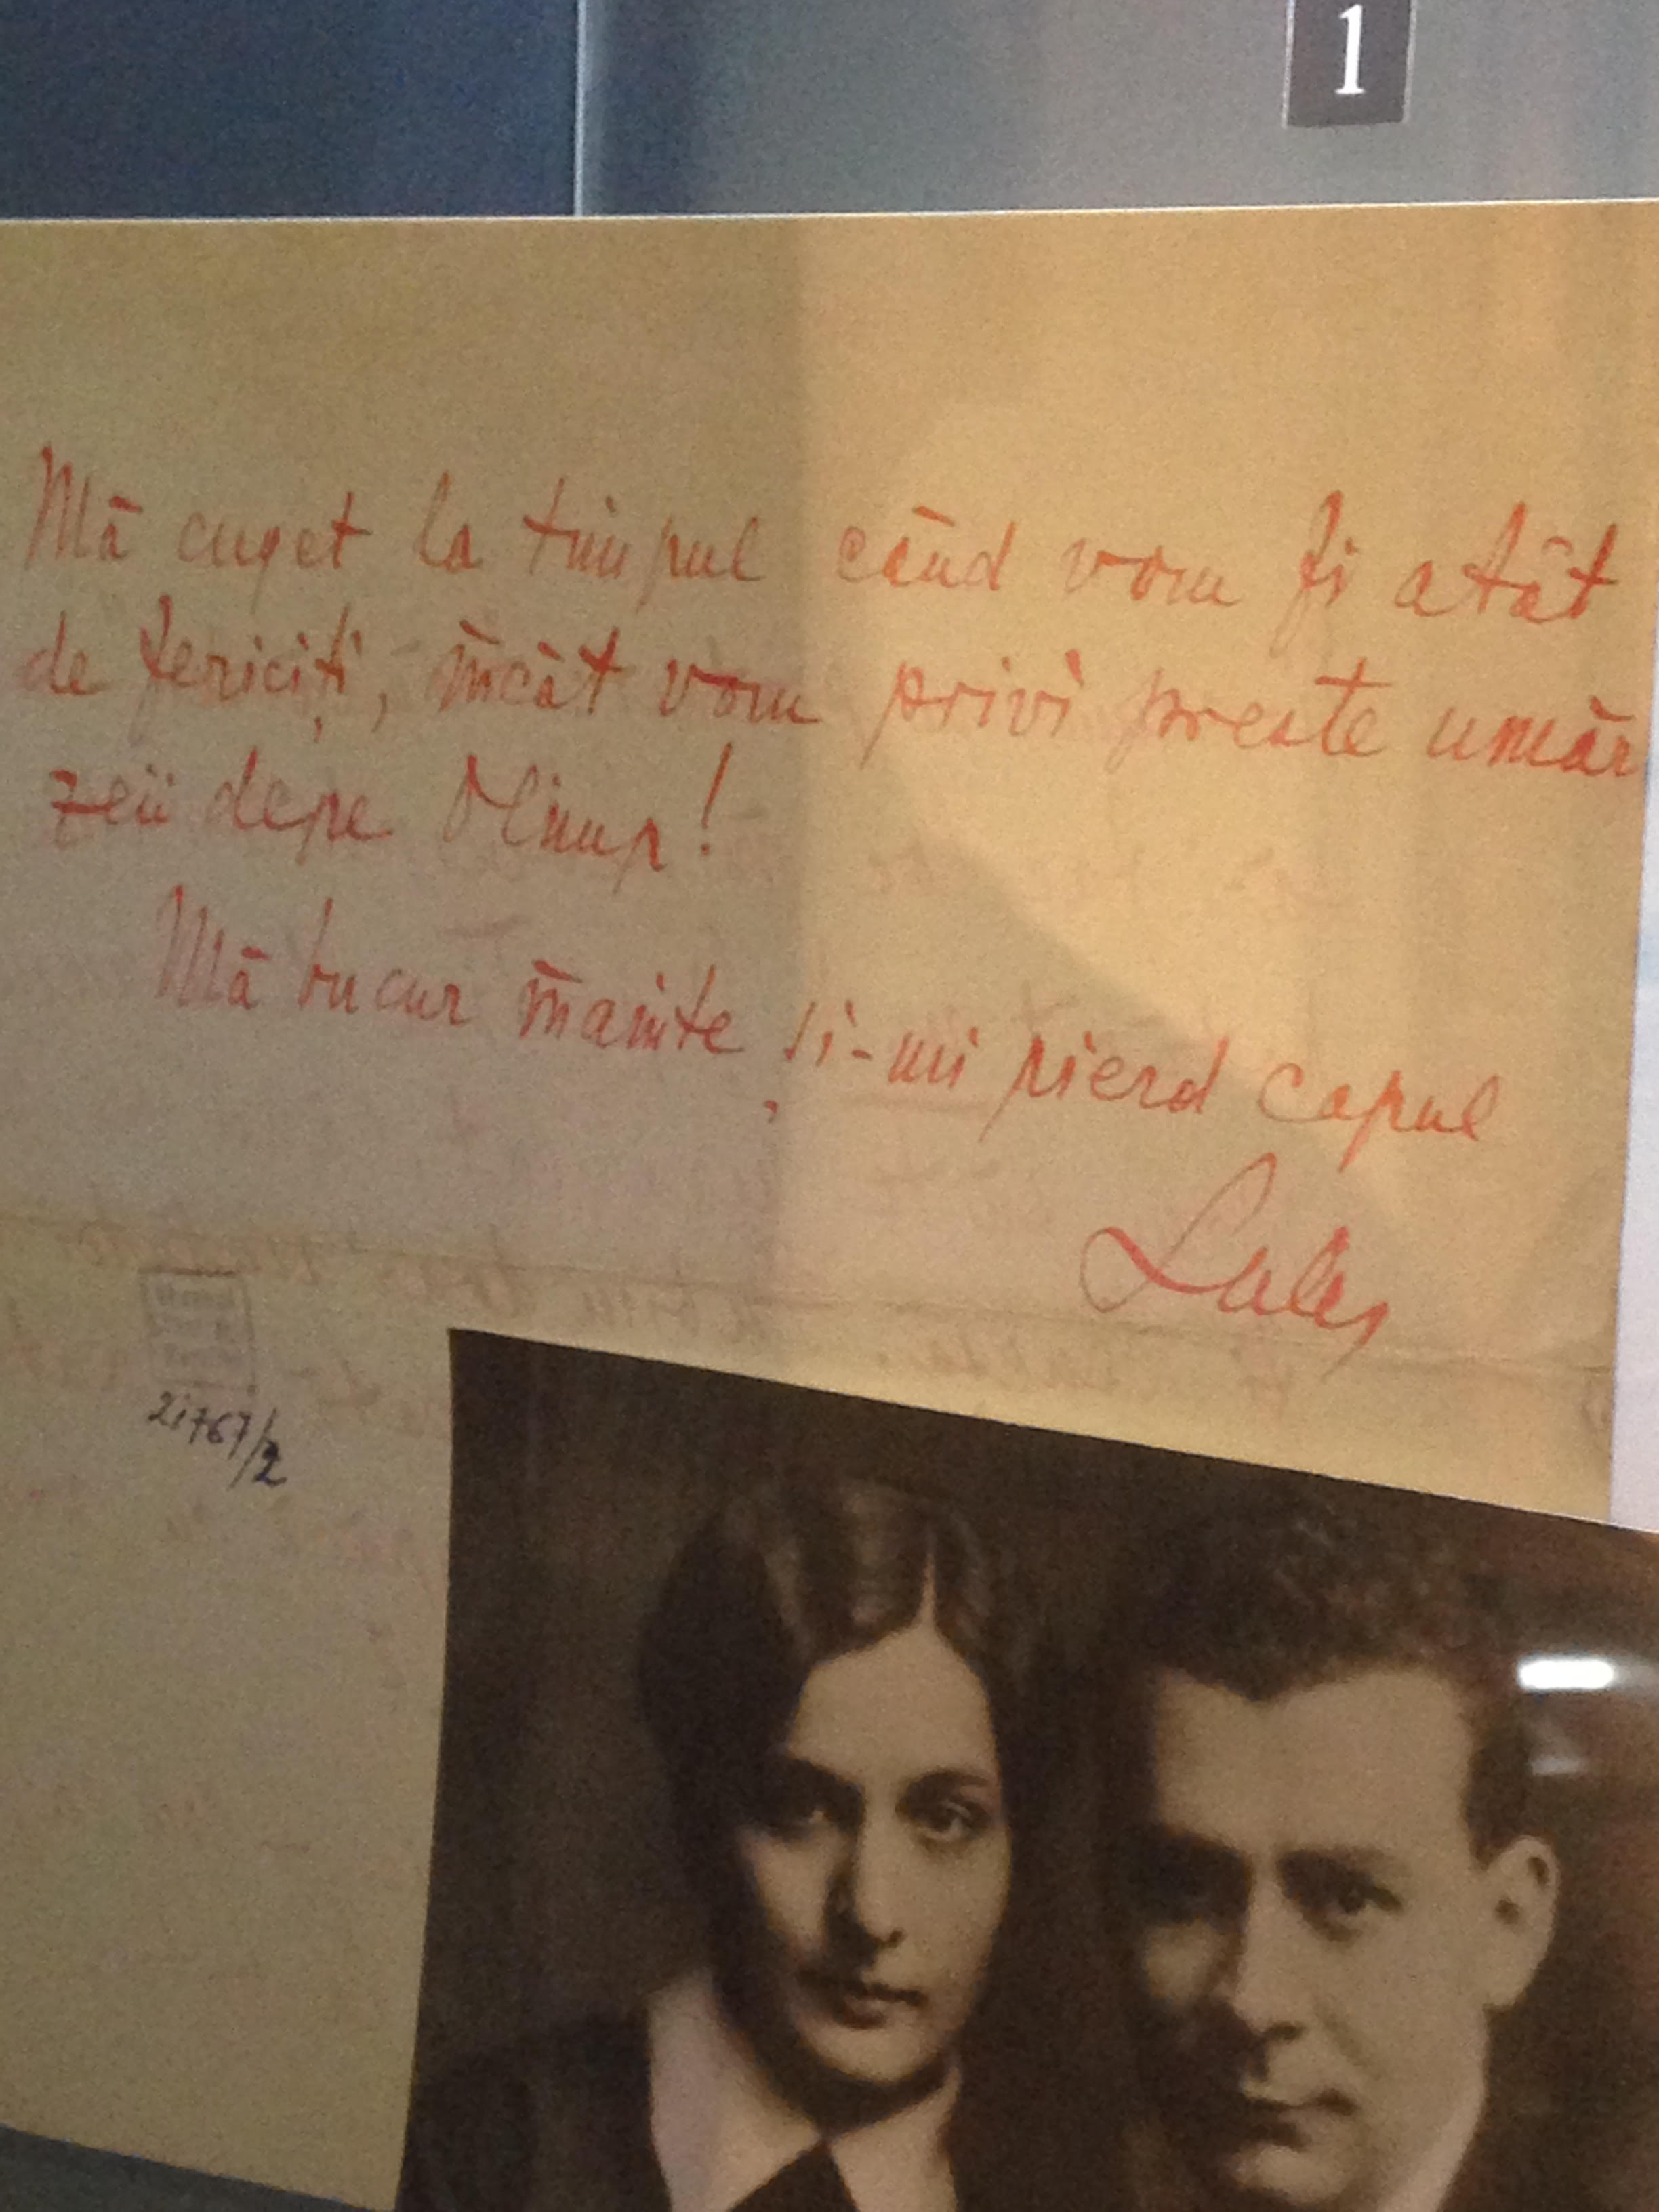 1
Mă cuget la timpul când vom fi atât
de fericiți, încât vom privi preste umăr
zeii depe Olimp!
Mă bucur înainte și-mi pierd capul
21767/2